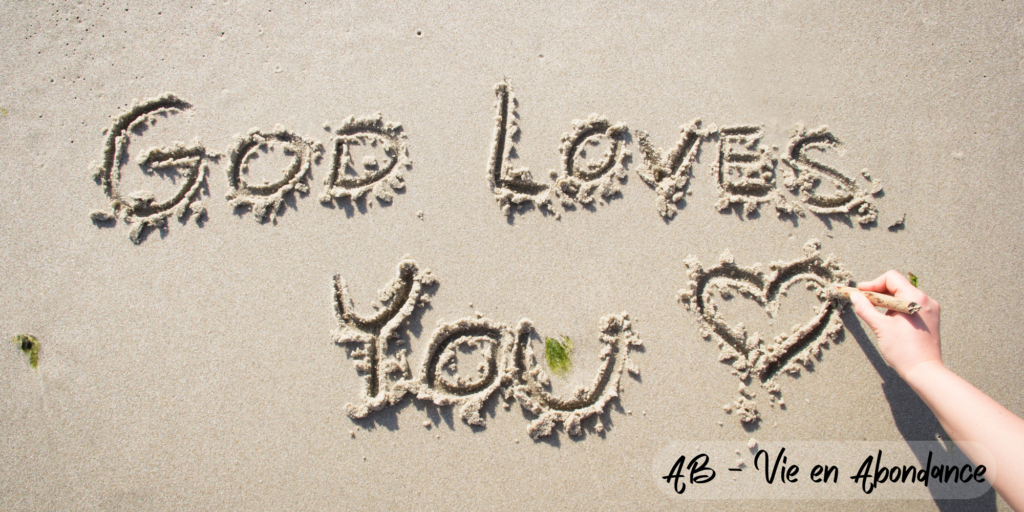 God Loves
You
AB - Vie en Abondance